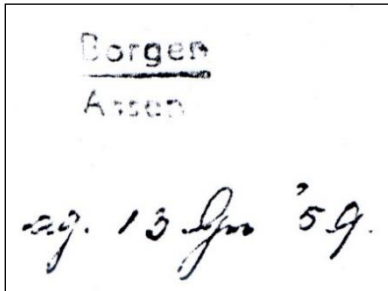 Borgen
Assen
13 Jan '59.